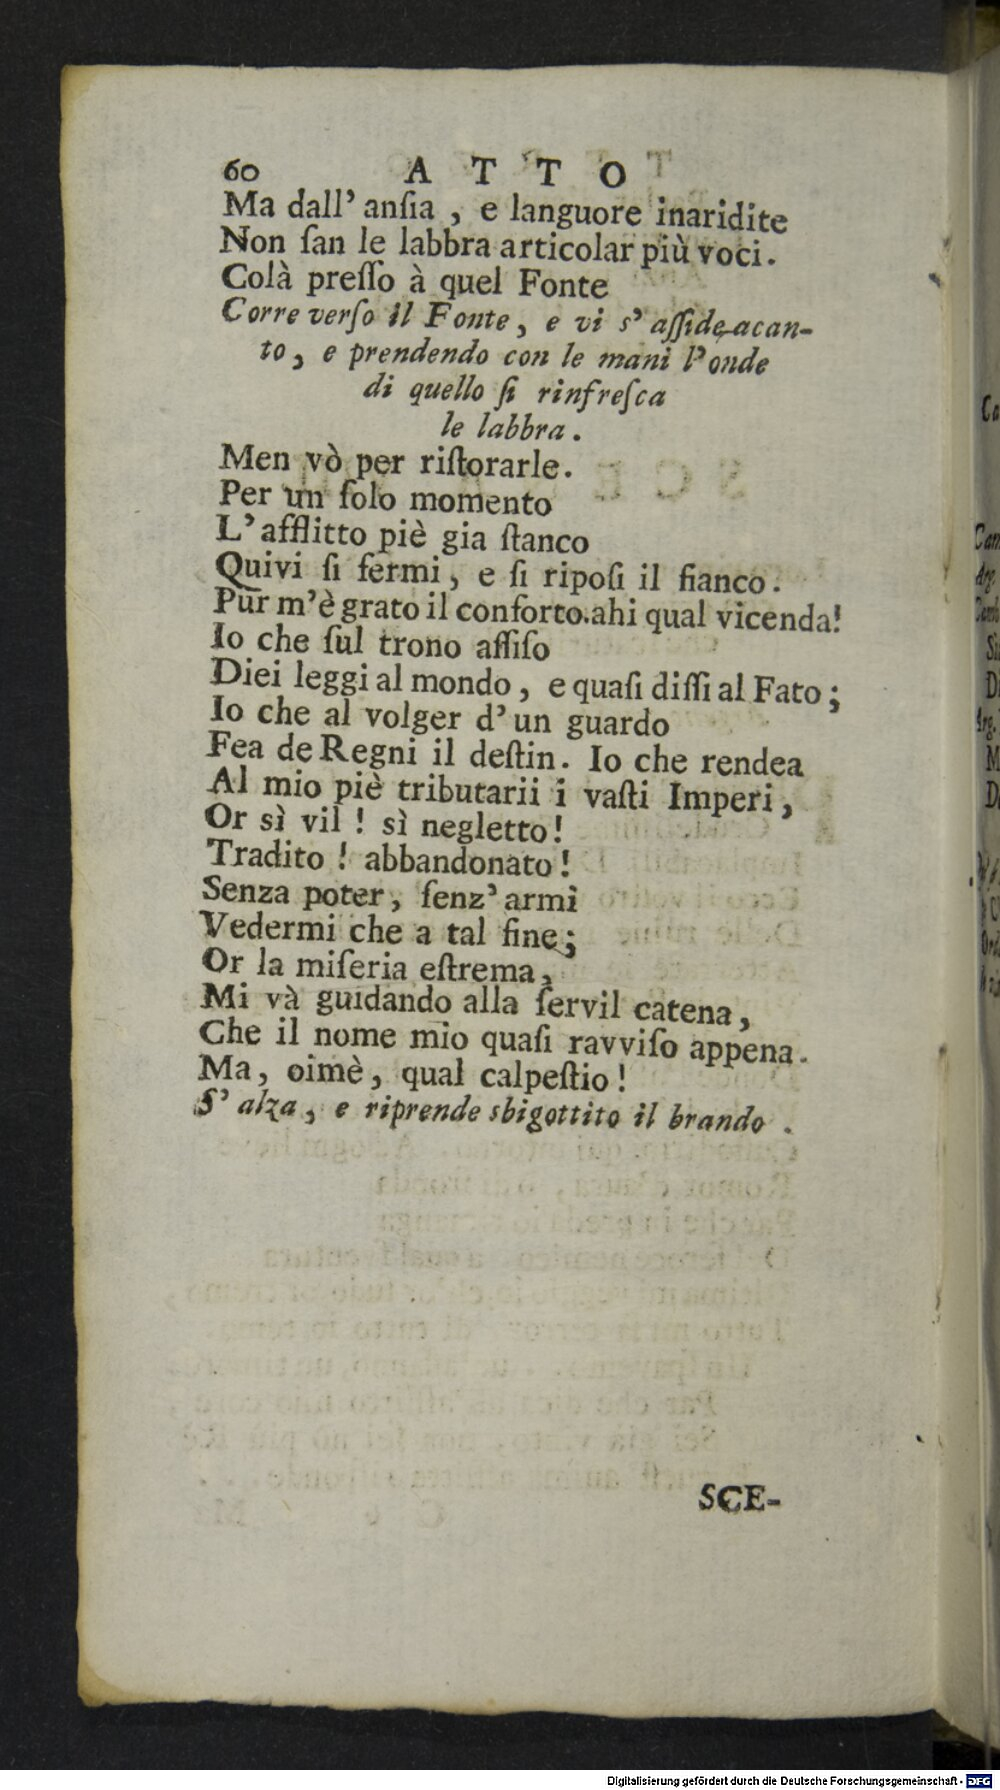 60 ATTO
Ma dall' anſia , e languore inaridite
Non ſan le labbra articolar più voci.
Colà preſſo à quel Fonte
Corre verſo il Fonte, e vi s' aſſide acan-
to, e prendendo con le mani l'onde
di quello ſi rinfreſca
le labbra.
Men vò per riſtorarle.
Per un ſolo momento
L'afflitto piè gia ſtanco
Quivi ſi fermi, e ſi ripoſi il fianco.
Pur m'è grato il conforto.ahi qual vicenda!
Io che ſul trono aſſiſo
Diei leggi al mondo, e quaſi diſſi al Fato;
Io che al volger d'un guardo
Fea de Regni il deſtin. Io che rendea
Al mio piè tributarii i vaſti Imperi,
Or sì vil ! sì negletto!
Tradito ! abbandonato!
Senza poter, ſenz'armi
Vedermi che a tal fine;
Or la miſeria eſtrema,
Mi và guidando alla ſervil catena,
Che il nome mio quaſi ravviſo appena.
Ma, oimè, qual calpeſtio!
S' alza, e riprende sbigottito il brando.
SCE-
Digitalisierung gefördert durch die Deutsche Forschungsgemeinschaft - DFG